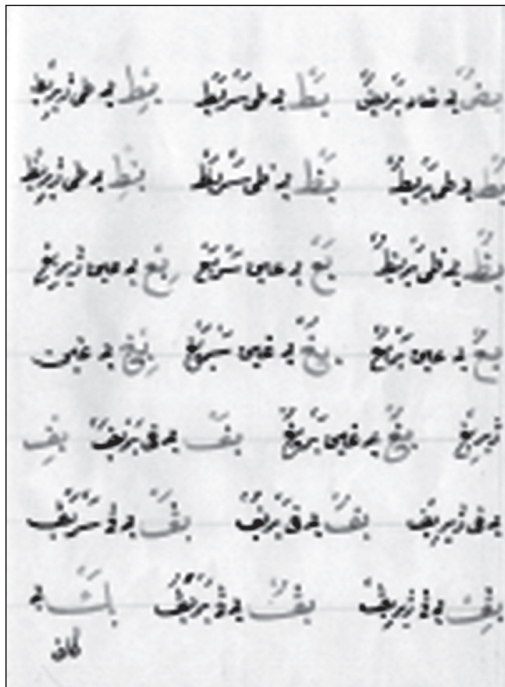 بضٌ بے ضاد بربضٌ بطً بے طی سربطً بطٍ بے طی زیربطٍ
بطٌ بے طی بربطٌ بظً بے ظی سربظً بظٍ بے ظی زیربظٍ
بظٌ بے ظی بربظٌ بعً بے عین سربعً بعٍ بے عین زیربعٍ
بعٌ بے عین بربعٌ بغً بے غین سربغً بغٍ بے غین
زیربغٍ بغٌ بے غین بربغٌ بفً بے فی بفً بفٍ
بے فی زیربفٍ بفٌ بے فی بربفٌ بقً بے قی سربقً
بقٍ بے قی زیربقٍ بقٌ بے قی بربقٌ بكً بے
كاف